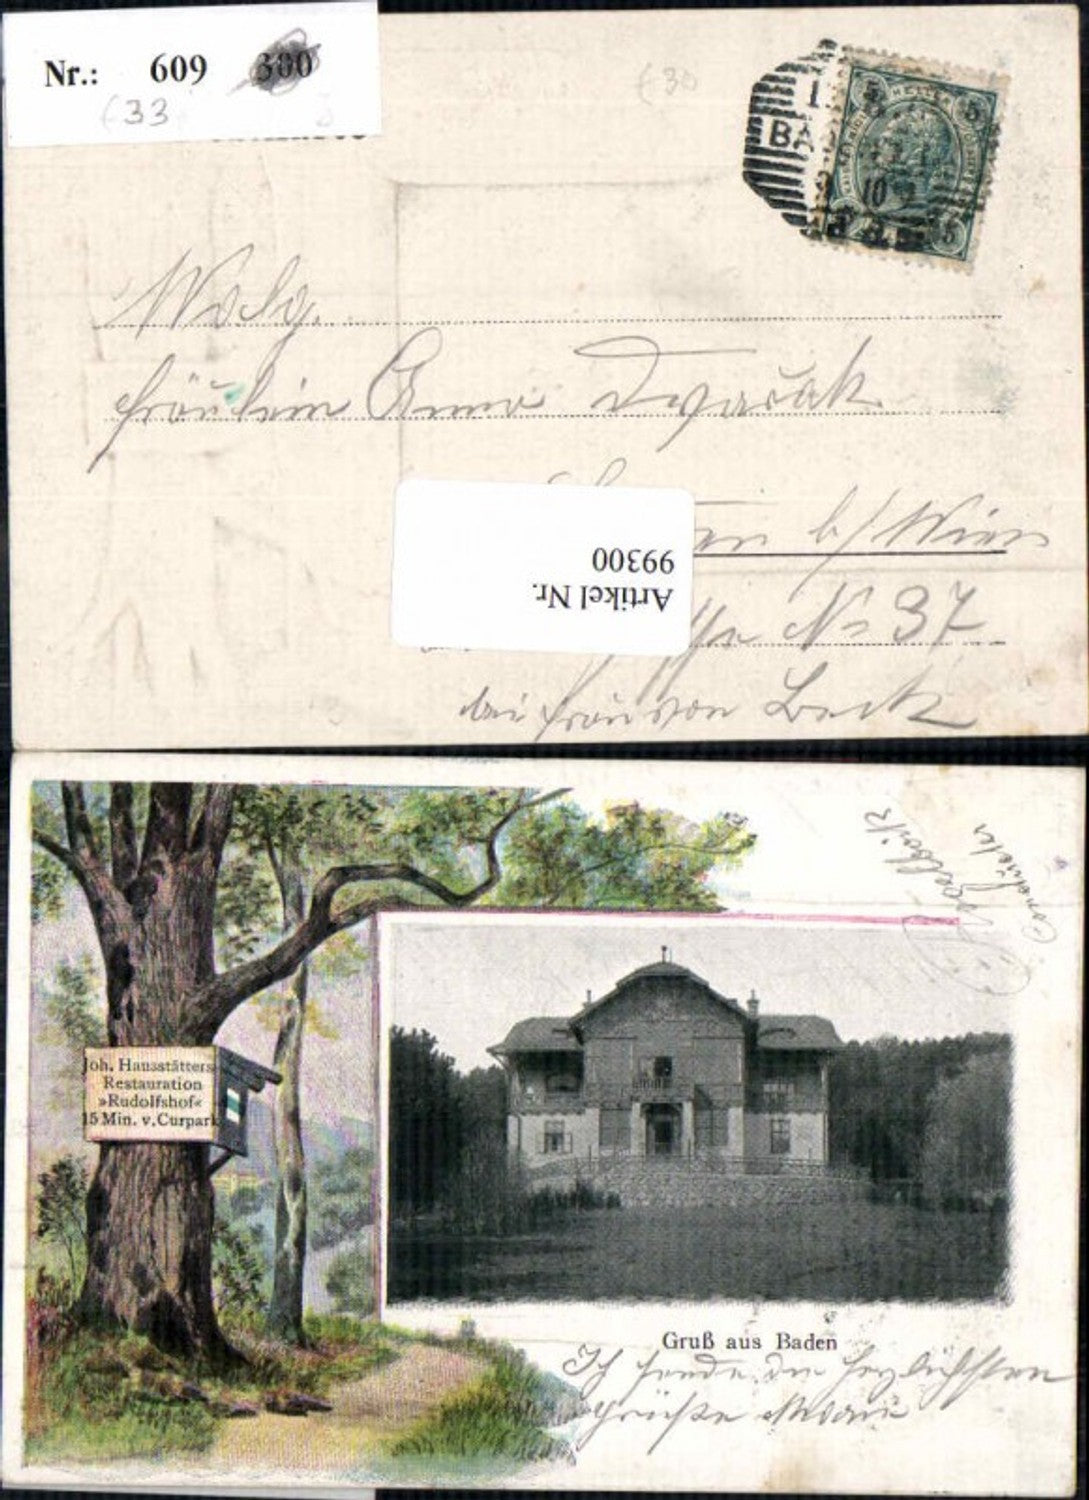 Nr.: 609 300
(33
(30
1
BA
10
5 HELLER 5
5
Wolg.
Fräulein Anna Dvorak
b/ Wien
No 37
bei Frau von Beck
Artikel Nr.
99300
Joh. Hausstätters
Restauration
»Rudolfshof«
15 Min. v. Curpark
Gruß aus Baden
Ich sende die herzlichsten
Grüße